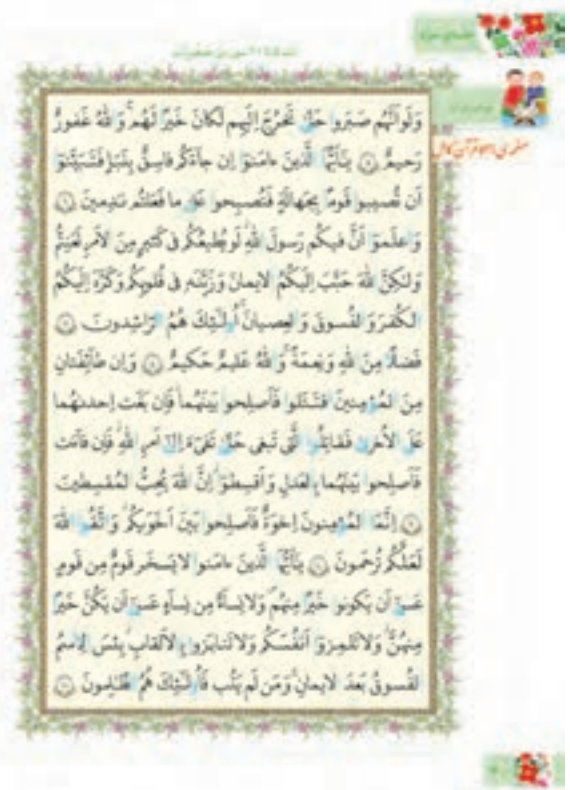 وَلَوأَنَّهُم صَبَروا حَتّىٰ تَخرُجَ إِلَيهِم لَكانَ خَيرًا لَهُم ۚ وَ اللّٰهُ غَفورٌ
رَحيمٌ ۝ يٰأَيُّهَا الَّذينَ ءامَنوا إِن جاءَكُم فاسِقٌ بِنَبَإٍ فَتَبَيَّنوا
أَن تُصيبوا قَومًا بِجَهالَةٍ فَتُصبِحوا عَلىٰ ما فَعَلتُم نٰدِمينَ ۝
وَ اعلَموا أَنَّ فيكُم رَسولَ اللّٰهِ ۚ لَو يُطيعُكُم فى كَثيرٍ مِنَ الأَمرِ لَعَنِتُّم
وَ لٰكِنَّ اللّٰهَ حَبَّبَ إِلَيكُمُ الايمانَ وَ زَيَّنَهُ فى قُلوبِكُم وَ كَرَّهَ إِلَيكُمُ
الكُفرَ وَ الفُسوقَ وَ العِصيانَ ۚ أُولٰئِكَ هُمُ الرّاشِدونَ ۝
فَضلًا مِنَ اللّٰهِ وَ نِعمَةً ۚ وَ اللّٰهُ عَليمٌ حَكيمٌ ۝ وَ إِن طائِفَتانِ
مِنَ المُؤمِنينَ اقتَتَلوا فَأَصلِحوا بَينَهُما ۖ فَإِن بَغَت إِحدىٰهُما
عَلَى الأُخرىٰ فَقاتِلُوا الَّتى تَبغى حَتّىٰ تَفىءَ إِلىٰ أَمرِ اللّٰهِ ۚ فَإِن فاءَت
فَأَصلِحوا بَينَهُما بِالعَدلِ وَ أَقسِطوا ۖ إِنَّ اللّٰهَ يُحِبُّ المُقسِطينَ
۝ إِنَّمَا المُؤمِنونَ إِخوَةٌ فَأَصلِحوا بَينَ أَخَوَيكُم ۚ وَ اتَّقُوا اللّٰهَ
لَعَلَّكُم تُرحَمونَ ۝ يٰأَيُّهَا الَّذينَ ءامَنوا لا يَسخَر قَومٌ مِن قَومٍ
عَسىٰ أَن يَكونوا خَيرًا مِنهُم وَ لا نِساءٌ مِن نِساءٍ عَسىٰ أَن يَكُنَّ خَيرًا
مِنهُنَّ ۖ وَ لا تَلمِزوا أَنفُسَكُم وَ لا تَنابَزوا بِالأَلقابِ ۖ بِئسَ الاسمُ
الفُسوقُ بَعدَ الايمانِ ۚ وَ مَن لَم يَتُب فَأُولٰئِكَ هُمُ الظّالِمونَ ۝